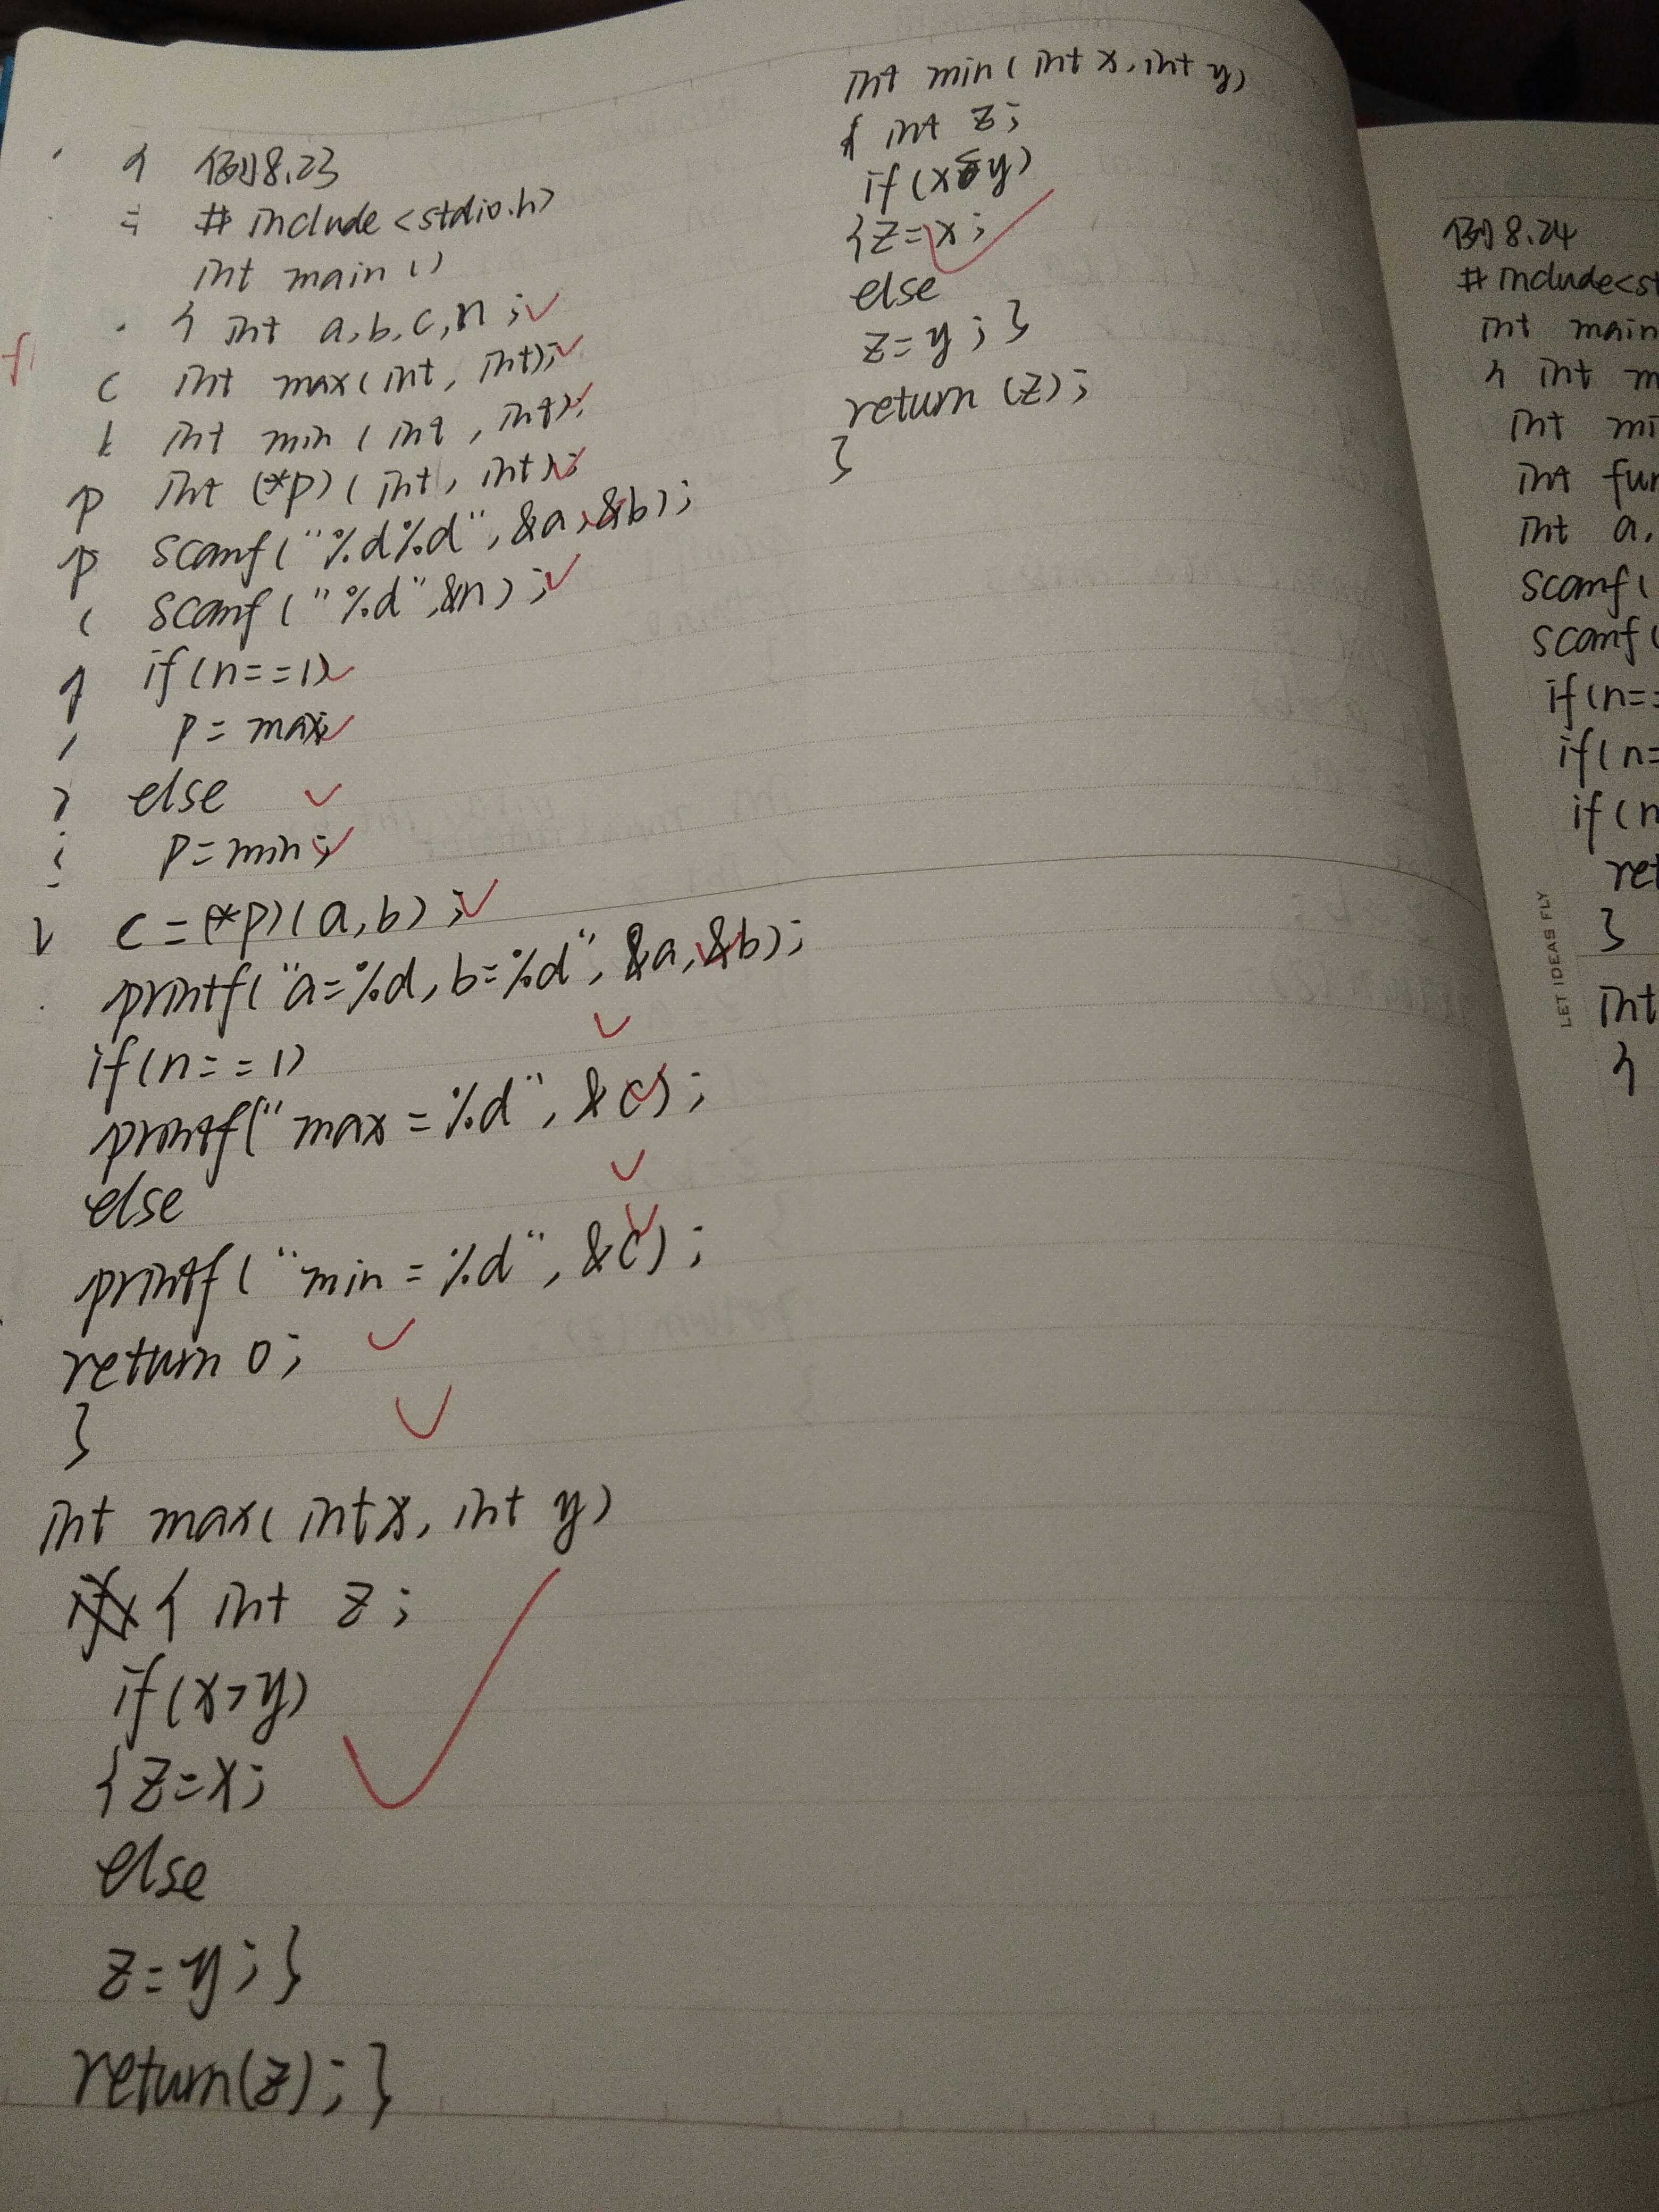 例8.23
#include<stdio.h>
int main()
{ int a,b,c,n;
int max(int, int);
int min(int, int);
int (*p)(int, int);
scanf("%d%d",&a,&b);
scanf("%d",&n);
if(n==1)
p=max;
else
p=min;
c=(*p)(a,b);
printf("a=%d,b=%d",&a,&b);
if(n==1)
printf("max=%d",&c);
else
printf("min=%d",&c);
return 0;
}
int max(int x,int y)
{ int z;
if(x>y)
{z=x;
else
z=y;}
return(z);}
int min(int x,int y)
{ int z;
{z=x;
else
z=y;}
return(z);
}
例8.24
#include<st
int main
{ int m
int mi
int fun
int a,
scanf(
scanf(
if(n=
if(n=
if(n
ret
}
LET IDEAS FLY
int
{